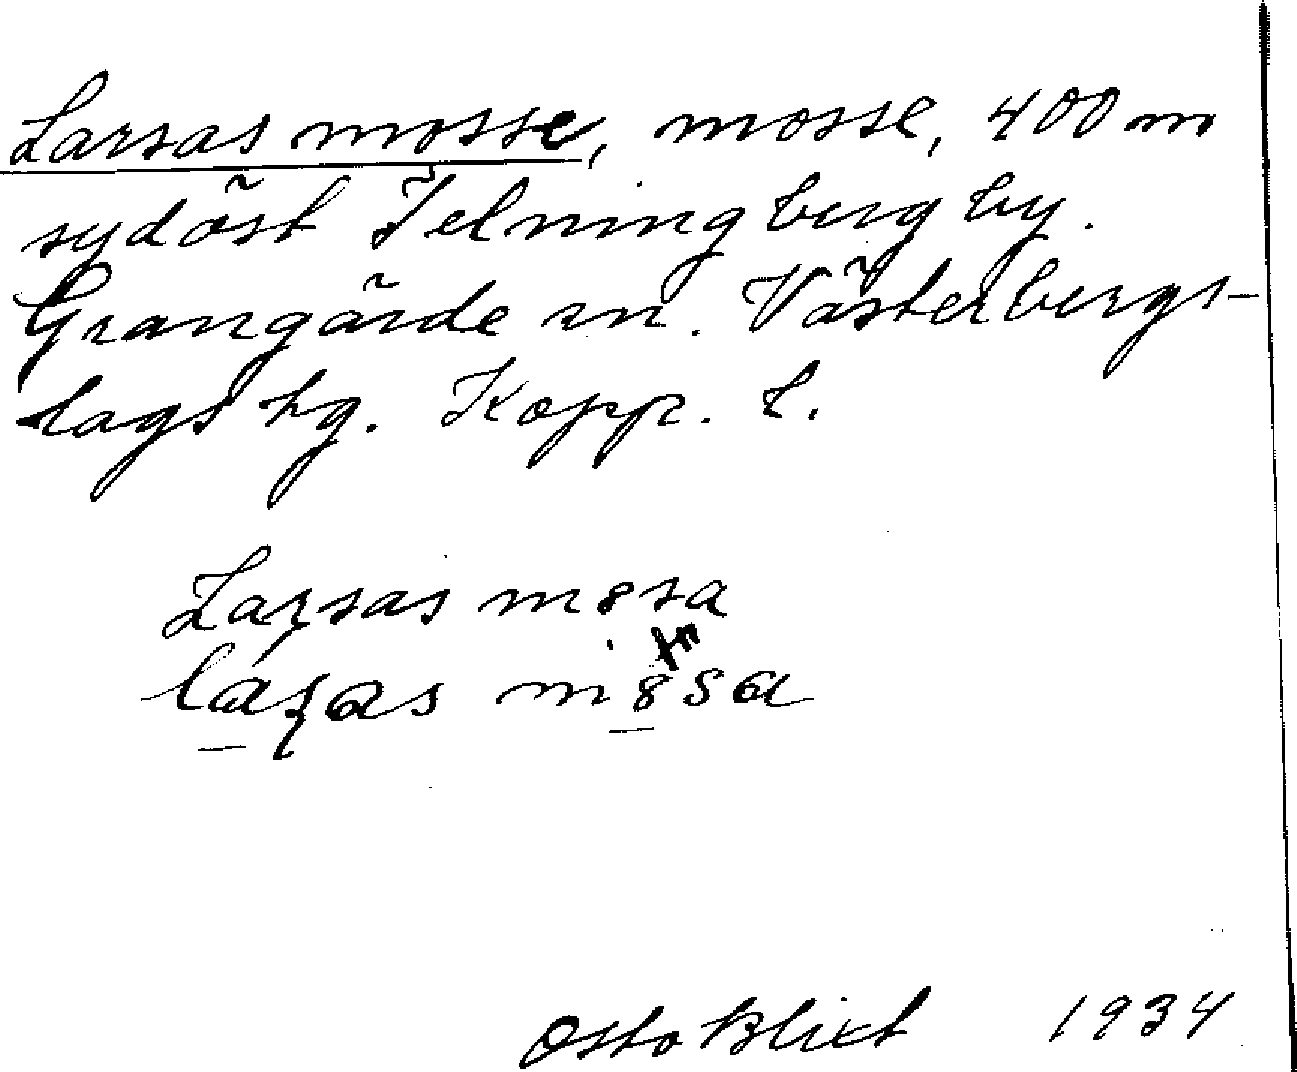 Larsas mosse, mosse, 400 m
sydöst Jelningberg by.
Grangärde sn. Västerbergs-
lags hg. Kopp. L.
Larsas m8sa
laʂas m8sa
Otto Blixt 1934